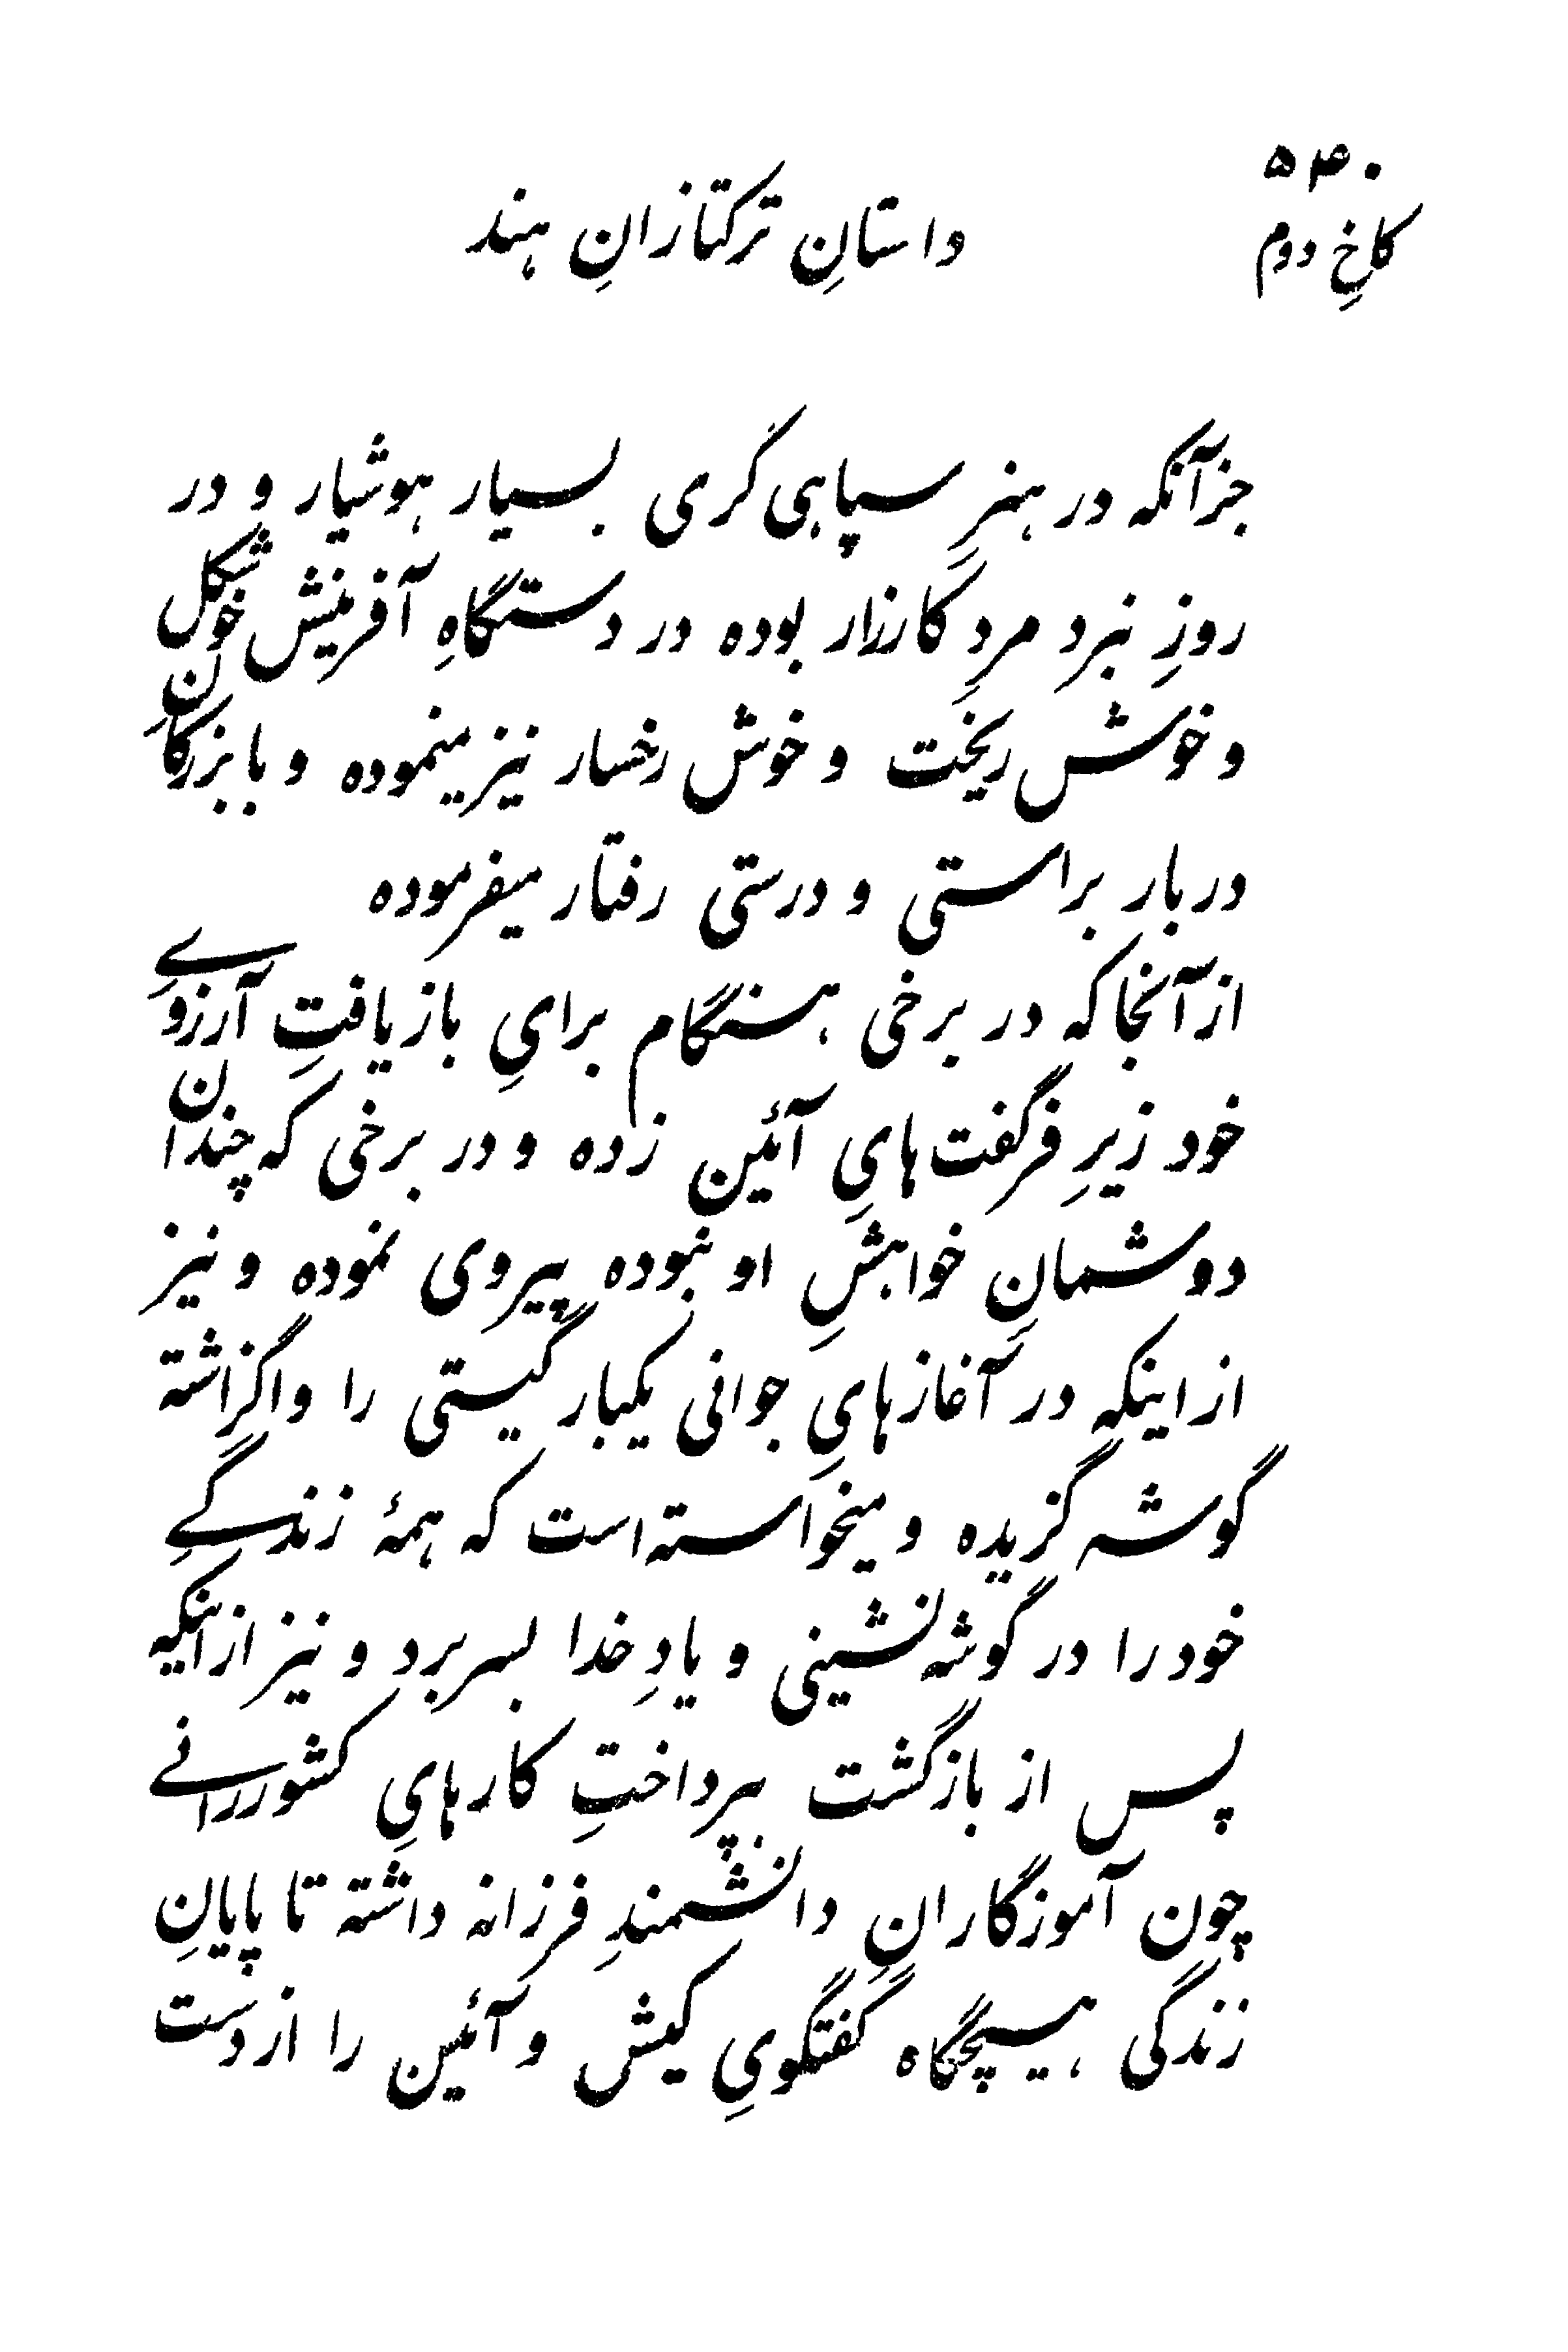 ۵۴۰
کاخِ دوم
داستانِ ترکتازانِ هند
جزآنکه در هنرِ سپاهی گری بسیار هوشیار و در
روزِ نبرد مردِ کارزار بوده در دستگاهِ آفرینش خوشگل
و خوش ریخت و خوش رخسار نیز مینموده و با بزرگانِ
دربار براستی و درستی رفتار میفرموده
از آنجا که در برخی هنگام برایِ بازیافتِ آرزوےِ
خود زیرِ فرگفت‌هایِ آئین زده و در برخی که چندان
دوشمانِ خواهشِ او نبوده پیروی نموده و نیز
از اینکه در آغازهایِ جوانی یکبار گیتی را واگزاشته
گوشه گزیده و میخواسته‌است که همۀ زندگےِ
خود را در گوشه‌نشینی و یادِ خدا بسر برد و نیز از اینکه
پس از بازگشت بپرداختِ کارهایِ کشوررانے
چون آموزگارانِ دانشمندِ فرزانه داشته تا پایانِ
زندگی هیچگاه گفتگویِ کیش و آئین را از دست